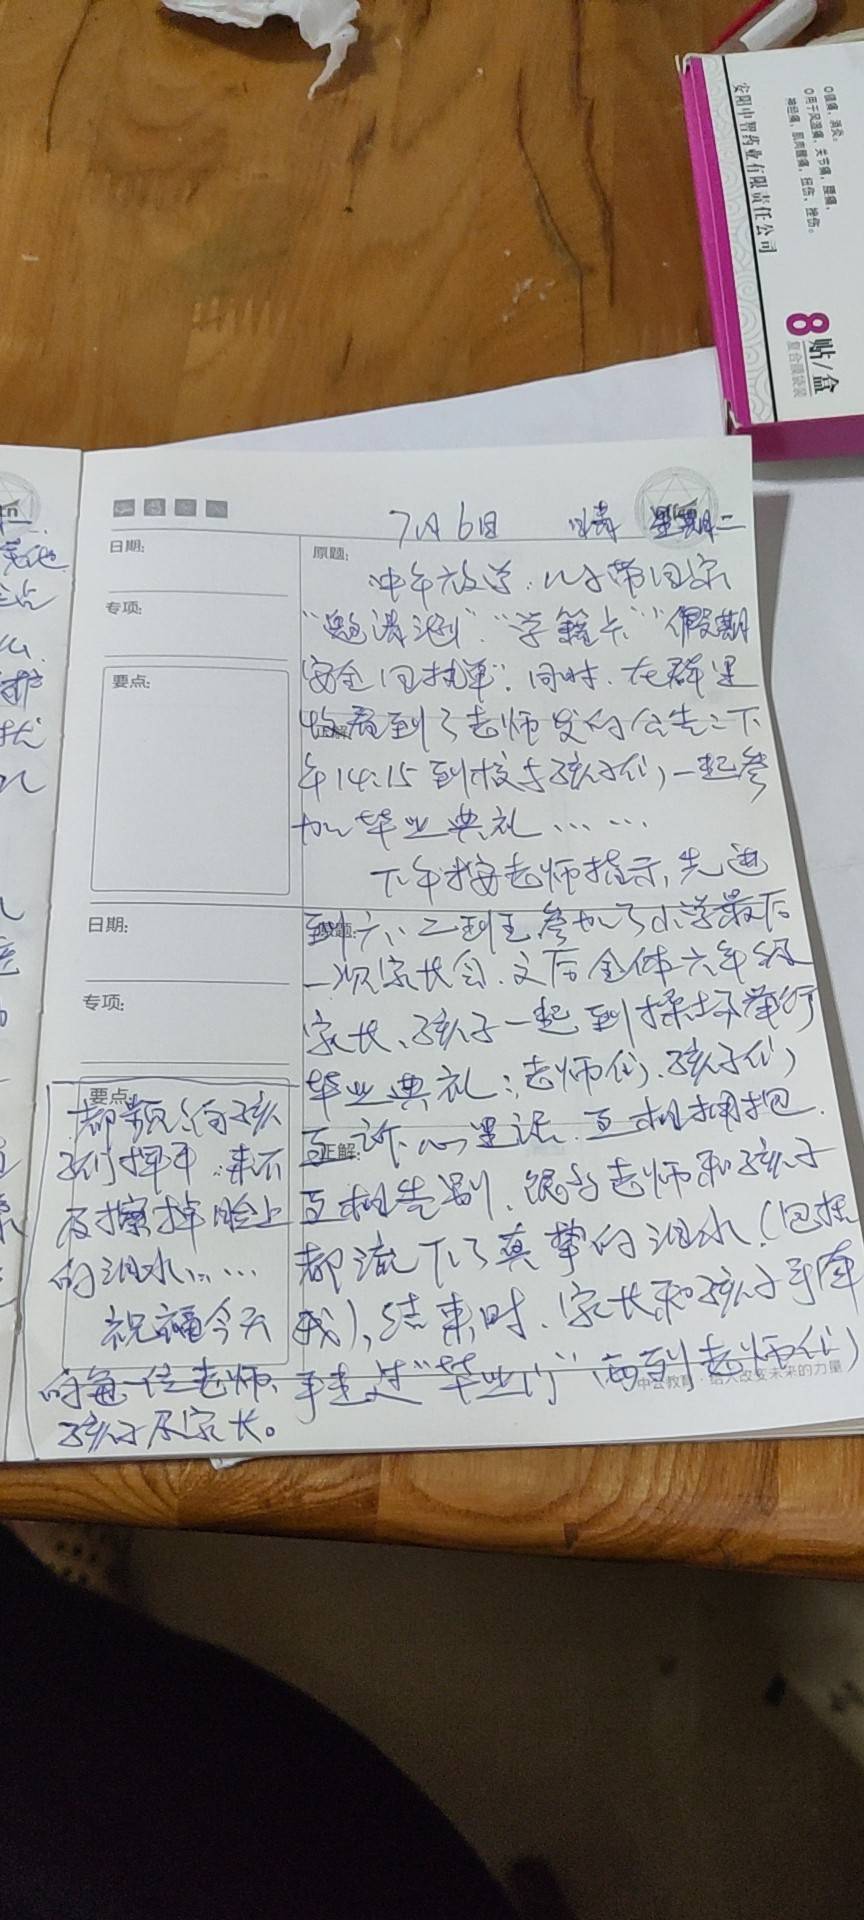 安阳中智药业有限责任公司
镇痛、消炎。
用于风湿痛，关节痛，腰痛，
神经痛，肌肉酸痛，扭伤，挫伤。
8贴/盒
复合膜袋装
7月6日 晴 星期二
日期:
原题:
专项:
要点:
中午放学，儿子带回家
“邀请函”“学籍卡”“假期
安全回执单”。同时，在群里
看到了老师发的公告：下
午14:15到校与孩子们一起参
加毕业典礼……
正解:
下午按老师指示，先进
到六、二班参加了小学最后
一次家长会，又后全体六年级
家长、孩子一起到操场举行
毕业典礼：老师们、孩子们
互诉心里话、互相拥抱、
互相告别，很多老师和孩子
都流下了真挚的泪水（包括
我），结束时，家长和孩子手牵
手走过“毕业门”，看到老师们
日期:
专项:
要点:
正解:
都频频向孩
子们挥手，来不
及擦掉脸上
的泪水……
祝福今天
的每一位老师、
孩子及家长。
中公教育·给人改变未来的力量